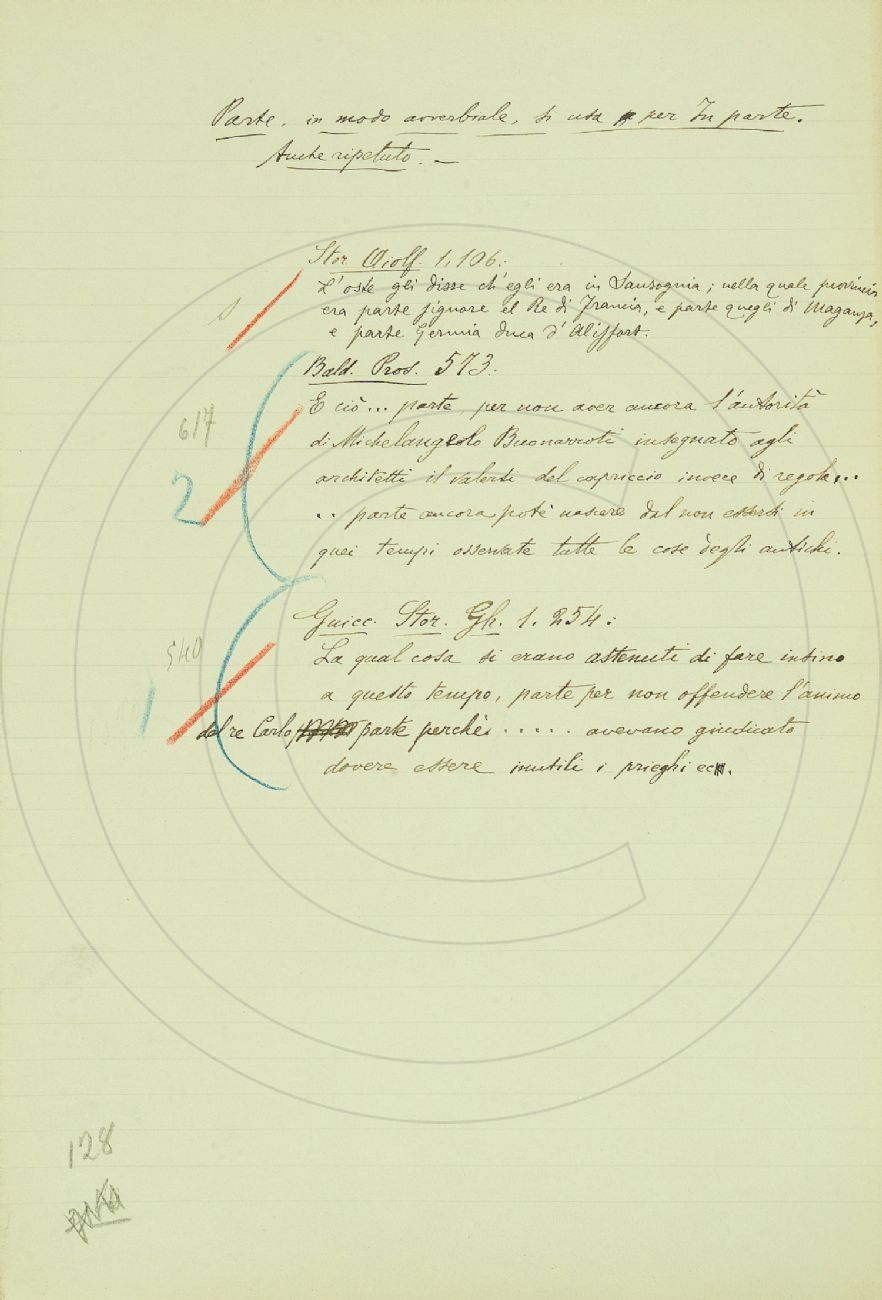 Parte, in modo avverbiale, si usa per In parte.
Anche ripetuto. –
Stor. Aiolf. 1. 106:
L'oste gli disse ch'egli era in Sansognia; nella quale provincia
era parte signore el Re di Francia, e parte quegli di Maganza,
e parte Gernia duca d'Aliffort.
Bald. Pros. 573:
617
E ciò... parte per non aver ancora l'autorità
di Michelangelo Buonarroti insegnato agli
2
architetti il valersi del capriccio invece di regola...
.. parte ancora potè nascere dal non essersi in
quei tempi osservate tutte le cose degli antichi.
Guicc. Stor. Gh. 1. 254:
540
La qual cosa si erano astenuti di fare insino
1
a questo tempo, parte per non offendere l'animo
del re Carlo parte perchè: ..... avevano giudicato
dovere essere inutili i prieghi ec.
128